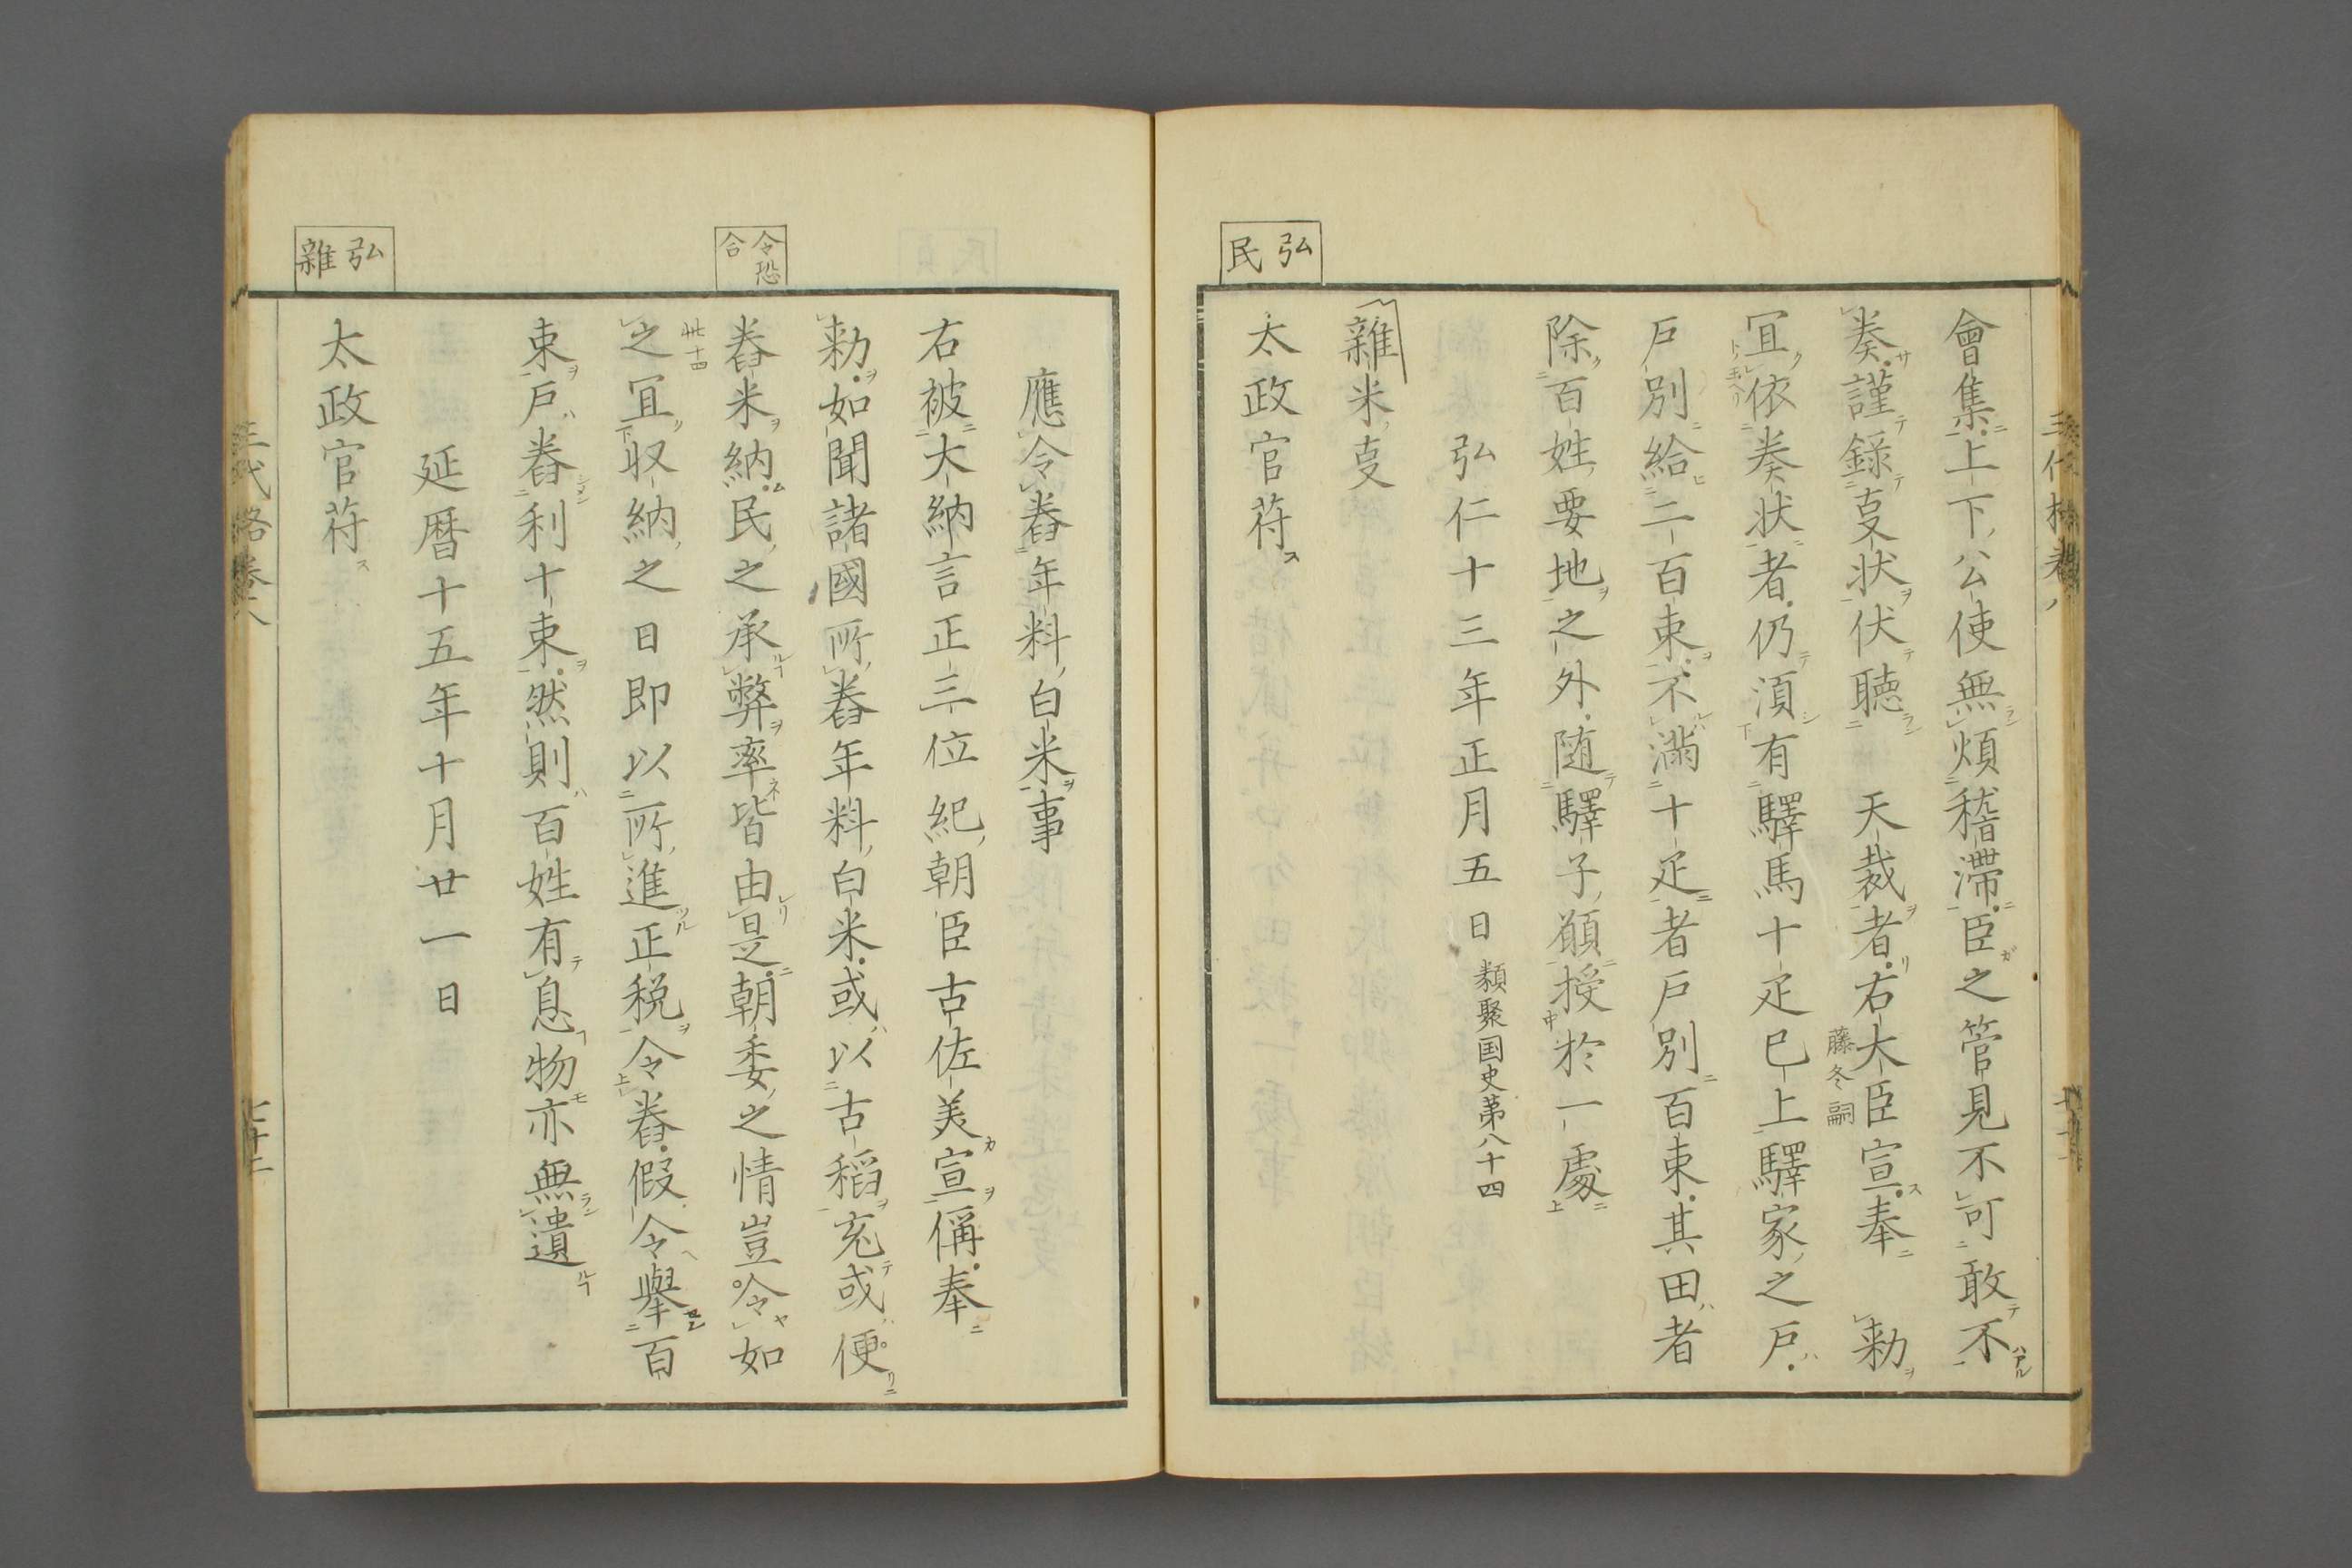 弘民
會集上下公使無煩稽滞臣之管見不可敢不
奏謹錄㕝状伏聴　天裁者右大臣宣奉　勅
藤冬嗣
宜依奏状者仍湏有驛馬十疋已上驛家之戸
戸別給二百束不満十疋者戸別百束其田者
除百姓要地之外随驛子願授於一處
弘仁十三年正月五日 類聚国史第八十四
雜米㕝
太政官苻
令恐合
弘雜
應令舂年料白米事
右被大納言正三位紀朝臣古佐美宣偁奉
勅如聞諸國所舂年料白米或以古稻充或便
舂米納民之承弊率皆由是朝委之情豈令如
此十四
之宜収納之日即以所進正税令舂假令舉百
束戸舂利十束然則百姓有息物亦無遺
延暦十五年十月廿一日
太政官苻